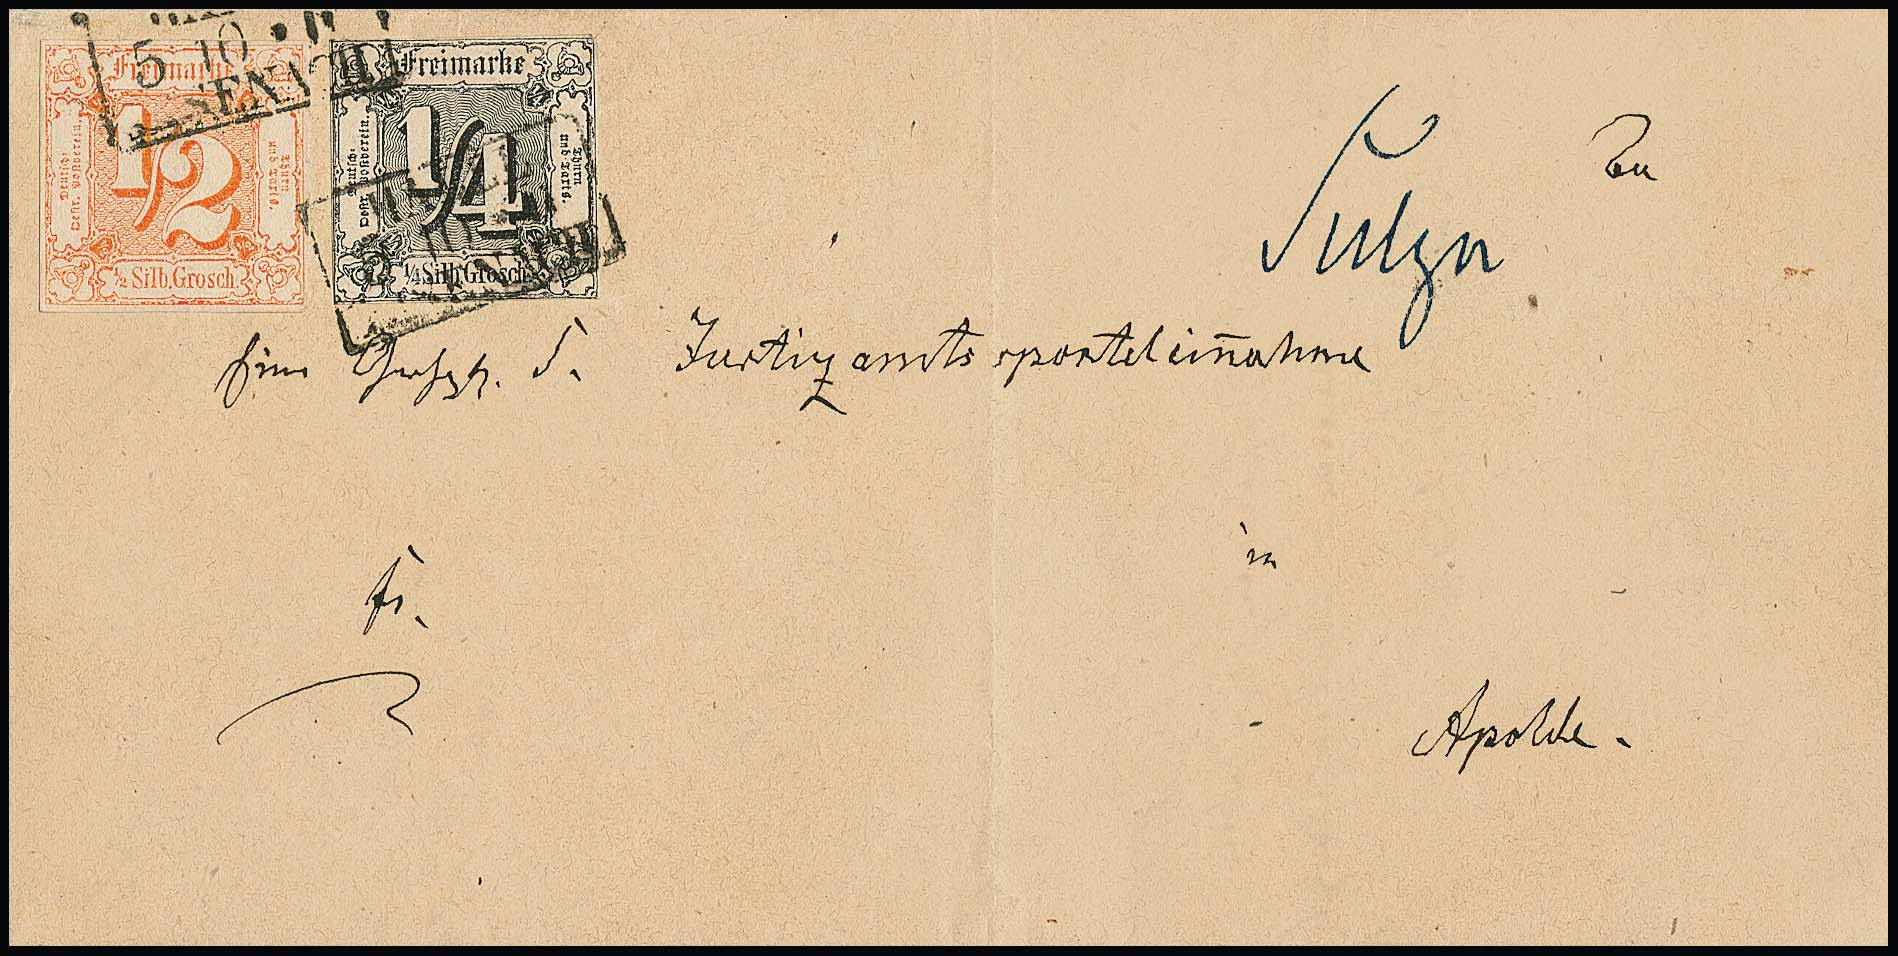 5 10
Freimarke
Deutsch-
Oestr. Postverein.
1/2
Thurn
und Taxis.
½ Silb. Grosch.
Freimarke
Deutsch-
Oestr. Postverein.
1/4
Thurn
und Taxis.
¼ Silb. Grosch.
Sulza
Justizamtssporteleinnahme
fr.
in
Apolda.